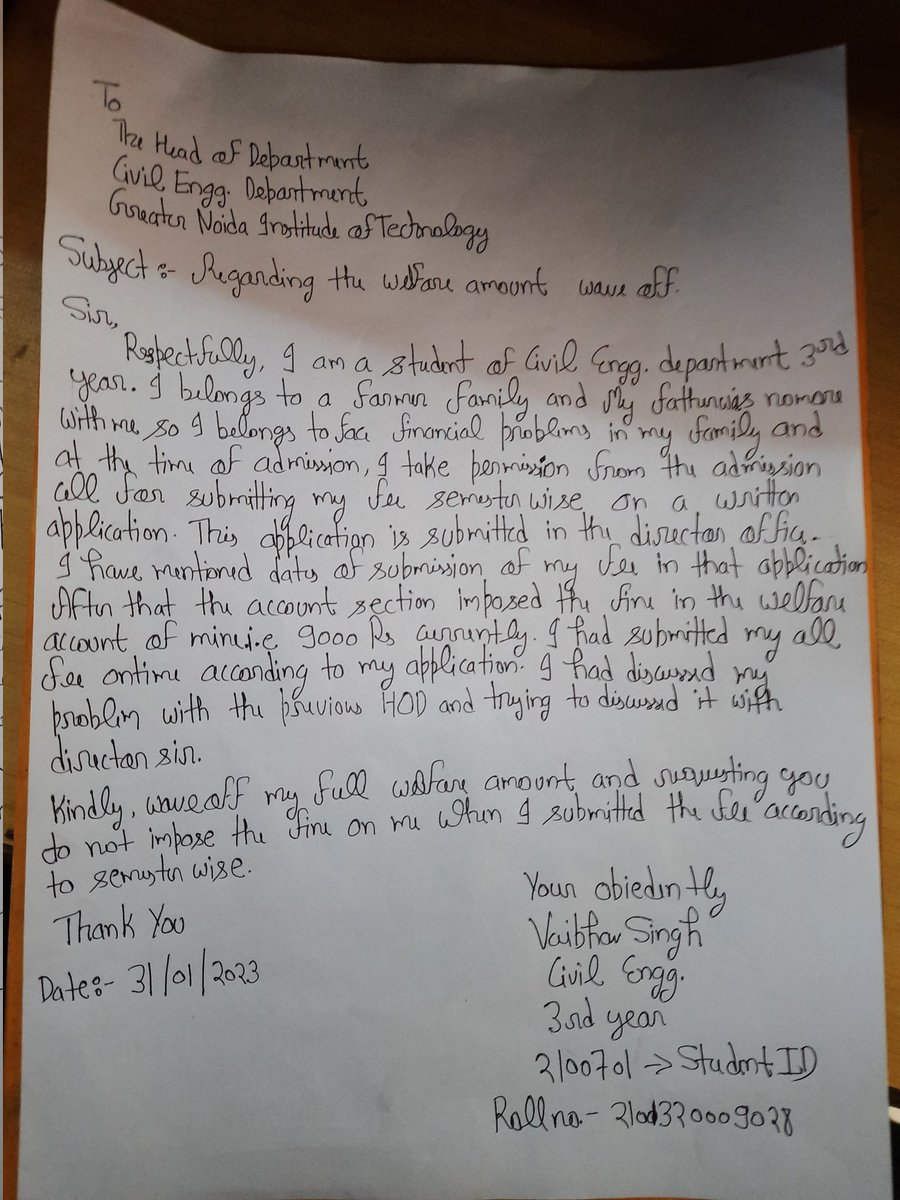 To
The Head of Department
Civil Engg. Department
Greater Noida Institude of Technology
Subject :- Regarding the welfare amount wave off.
Sir,
Respectfully, I am a student of Civil Engg. department 3rd
year. I belongs to a farmer family and My father is nomore
with me so I belongs to face financial problems in my family and
at the time of admission, I take permission from the admission
cell for submitting my fee semester wise on a written
application. This application is submitted in the director office.
I have mentioned dates of submission of my fee in that application
After that the account section imposed the fine in the welfare
account of mine i.e 9000 Rs currently. I had submitted my all
fee ontime according to my application. I had discussed my
problem with the previous HOD and trying to discussed it with
director sir.
Kindly, wave off my full welfare amount and requesting you
do not impose the fine on me when I submitted the fee according
to semester wise.
Thank You
Date:- 31/01/2023
Your obiedintly
Vaibhav Singh
Civil Engg.
3rd year
2100701 → Student ID
Roll no.-